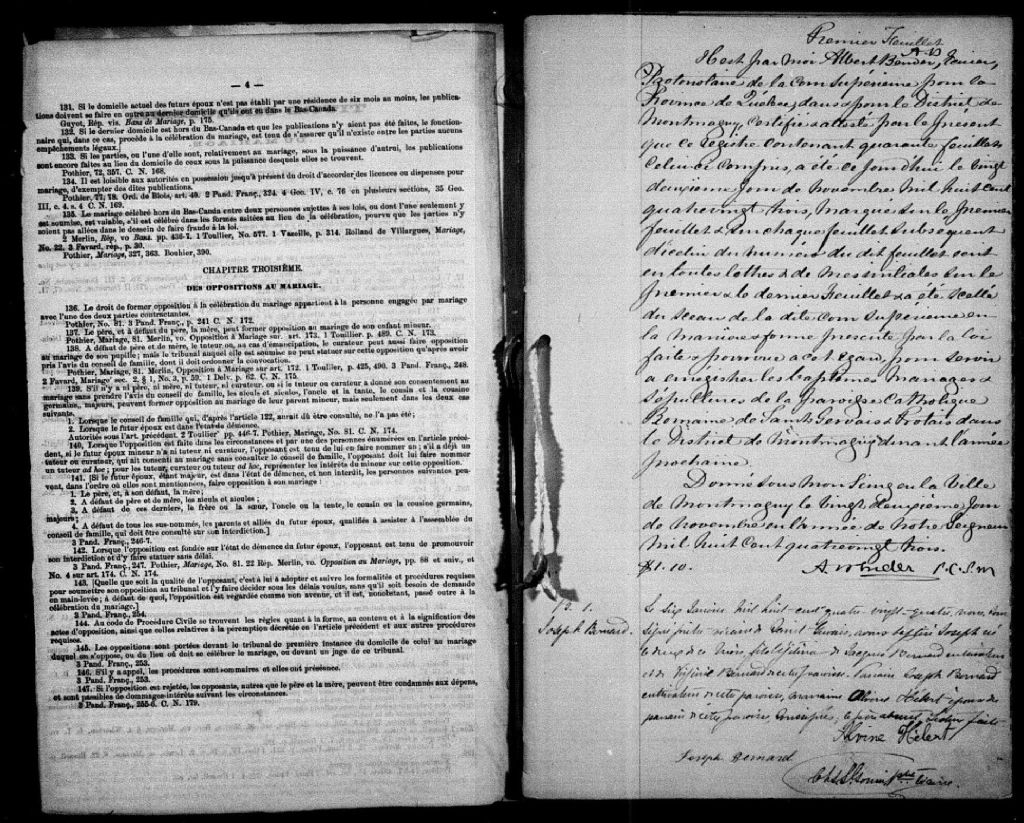 — 4 —
131. Si le domicile actuel des futurs époux n'est pas établi par une résidence de six mois au moins, les publica-
tions doivent se faire en outre au dernier domicile qu'ils ont eu dans le Bas-Canada.
Guyot, Rép. vis. Bans de Mariage, p. 175.
132. Si le dernier domicile est hors du Bas-Canada et que les publications n'y aient pas été faites, le fonction-
naire qui, dans ce cas, procède à la célébration du mariage, est tenu de s'assurer qu'il n'existe entre les parties aucuns
empêchements légaux.
133. Si les parties, ou l'une d'elle sont, relativement au mariage, sous la puissance d'autrui, les publications
sont encore faites au lieu du domicile de ceux sous la puissance desquels elles se trouvent.
Pothier, 72, 357. C. N. 168.
134. Il est loisible aux autorités en possession jusqu'à présent du droit d'accorder des licences ou dispenses pour
mariage, d'exempter des dites publications.
Pothier, 77, 78. Ord. de Blois, art. 40. 2 Pand. Franç., 324. 4 Geo. IV, c. 76 en plusieurs sections, 35 Geo.
III, c. 4. s. 4 C. N. 169.
135. Le mariage célébré hors du Bas-Canda entre deux personnes sujettes à ses lois, ou dont l'une seulement y
est soumise, est valable, s'il est célébré dans les formes usitées au lieu de la célébration, pourvu que les parties n'y
soient pas allées dans le dessein de faire fraude à la loi.
2 Merlin, Rép, vo Bans. pp. 436-7. 1 Toullier, No. 577. 1 Vazeille, p. 314. Rolland de Villargues, Mariage,
No. 22. 3 Favard, rép., p. 30.
Pothier, Mariage, 327, 363. Bouhier, 390.
CHAPITRE TROISIÈME.
DES OPPOSITIONS AU MARIAGE.
136. Le droit de former opposition à la célébration du mariage appartient à la personne engagée par mariage
avec l'une des deux parties contractantes.
Pothier, No. 81. 3 Pand. Franç., p. 241 C. N. 172.
137. Le père, et à défaut du père, la mère, peut former opposition au mariage de son enfant mineur.
Pothier, Mariage, 81. Merlin, vo. Opposition à Mariage sur. art. 173. 1 Toullier, p. 489. C. N. 173.
138. A défaut de père et de mère, le tuteur ou, au cas d'émancipation, le curateur peut aussi faire opposition
au mariage de son pupille; mais le tribunal auquel elle est soumise ne peut statuer sur cette opposition qu'après avoir
pris l'avis du conseil de famille, dont il doit ordonner la convocation.
Pothier, Mariage, 81. Merlin, Opposition à Mariage sur art. 172. 1 Toullier, p. 425, 490. 3 Pand. Franç., 248.
2 Favard, Mariage, sec. 2. § 1, No. 3, p. 59. 1 Delv. p. 62. C. N. 175.
139. S'il n'y a ni père, ni mère, ni tuteur, ni curateur, ou si le tuteur ou curateur a donné son consentement au
mariage sans prendre l'avis du conseil de famille, les aïeuls et aïeules, l'oncle et la tante, le cousin et la cousine
germains, majeurs, peuvent former opposition au mariage de leur parent mineur, mais seulement dans les deux cas
suivants.
1. Lorsque le conseil de famille qui, d'après l'article 122, aurait dû être consulté, ne l'a pas été;
2. Lorsque le futur époux est dans l'état de démence.
Autorités sous l'art. précédent. 2 Toulier pp. 446-7. Pothier, Mariage, No. 81. C. N. 174.
140. Lorsque l'opposition est faite dans les circonstances et par une des personnes énumérées en l'article précé-
dent, si le futur époux mineur n'a ni tuteur ni curateur, l'opposant est tenu de lui en faire nommer un; s'il a déjà un
tuteur ou curateur, qui ait consenti au mariage sans consulter le conseil de famille, l'opposant doit lui faire nommer
un tuteur ad hoc; pour les tuteur, curateur ou tuteur ad hoc, représenter les intérêts du mineur sur cette opposition.
141. [Si le futur époux, étant majeur, est dans l'état de démence, et non interdit, les personnes suivantes peu-
vent, dans l'ordre où elles sont mentionnées, faire opposition à son mariage:
1. Le père, et, à son défaut, la mère;
2. A défaut de père et de mère, les aïeuls et aïeules;
3. A défaut de ces derniers, le frère ou la sœur, l'oncle ou la tente, le cousin ou la cousine germains,
majeurs;
4. A défaut de tous les sus-nommés, les parents et alliés du futur époux, qualifiés à assister à l'assemblée du
conseil de famille, qui doit être consulté sur son interdiction.]
3 Pand. Franç., 246-7.
142. Lorsque l'opposition est fondée sur l'état de démence du futur époux, l'opposant est tenu de promouvoir
son interdiction et d'y faire statuer sans délai.
3 Pand. Franç., 247. Pothier, Mariage, No. 81. 22 Rép. Merlin, vo. Opposition au Mariage, pp. 88 et suiv., et
No. 4 sur art. 174. C. N. 174.
143. [Quelle que soit la qualité de l'opposant, c'est à lui à adopter et suivre les formalités et procédures requises
pour soumettre son opposition au tribunal et l'y faire décider sous les délais voulus, sans qu'il soit besoin de demande
en main-levée; à défaut de quoi, l'opposition est regardée comme non avenue, et il est, nonobstant, passé outre à la
célébration du mariage.]
3 Pand. Franç., 254.
144. Au code de Procédure Civile se trouvent les règles quant à la forme, au contenu et à la signification des
actes d'opposition, ainsi que celles relatives à la péremption décrétée en l'article précédent et aux autres procédures
requises.
145. Les oppositions sont portées devant le tribunal de première instance du domicile de celui au mariage
duquel on s'oppose, ou du lieu où doit se célébrer le mariage, ou devant un juge de ce tribunal.
3 Pand. Franç., 253.
146. S'il y a appel, les procédures sont sommaires et elles ont préséance.
3 Pand. Franç., 253.
147. Si l'opposition est rejetée, les opposants, autres que le père et la mère, peuvent être condamnés aux dépens,
et sont passibles de dommages-intérêts suivant les circonstances.
3 Pand. Franç., 255-6. C. N. 179.
Premier Feuillet
A.B
Il est par moi Albert Bender, Ecuier,
Protonotaire de la cour Supérieure pour la
Province de Québec, dans & pour le District de
Montmagny, certifié & attesté par le présent
que ce Registre contenant quarante feuillets
celui ci compris, a été ce jourd'hui le vingt
deuxième jour de novembre mil huit cent
quatre vingt trois, marqué sur le premier
feuillet & sur chaque feuillet subséquent
du numéro du dit feuillet écrit
en toutes lettres & de mes initiales sur le
premier & le dernier Feuillet & a été scellé
du sceau de la dite cour Supérieure en
la manière & forme prescrite par la loi
faite & pourvue à cet égard, pour servir
a enregistrer les baptêmes mariages &
sépultures de la paroisse Catholique
Romaine de Saints Gervais & Protais dans
le District de Montmagny durant l'année
prochaine.
Donné sous mon seing en la Ville
de Montmagny le vingt deuxième jour
de novembre en l'année de notre Seigneur
mil huit cent quatre vingt trois.
$1.10. A Bender P.C.S.M
B. 1.
Joseph Bernard.
Le six Janvier mil huit-cent quatre-vingt-quatre, nous, sous-
signé prêtre vicaire de Saint-Gervais, avons baptisé Joseph né
de Jacques Bernard cultivateur
et de Bernard de cette paroisse. Parrain Joseph Bernard
cultivateur de cette paroisse, marraine Alvine Hébert épouse du
parrain de cette paroisse, lecture faite
Alvine Hébert
Joseph Bernard
Ptre Vicaire.